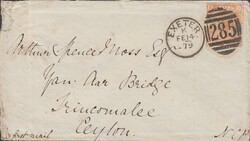 EXETER
K
FE 14
79
285
Arthur Spencer Moss Esq
Yan Aar Bridge
Trincomalee
Ceylon
mail